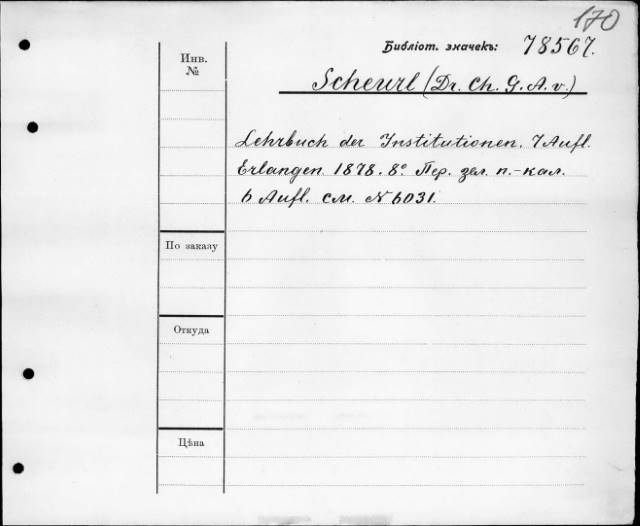 170
Библіот. значекъ: 78567.
Инв.
№
Scheurl (Dr. Ch. G. A. v.)
Lehrbuch der Institutionen. 7 Aufl.
Erlangen. 1878. 8° Пер. зел. п.-кал.
6 Aufl. см. N 6031.
По заказу
Откуда
Цѣна